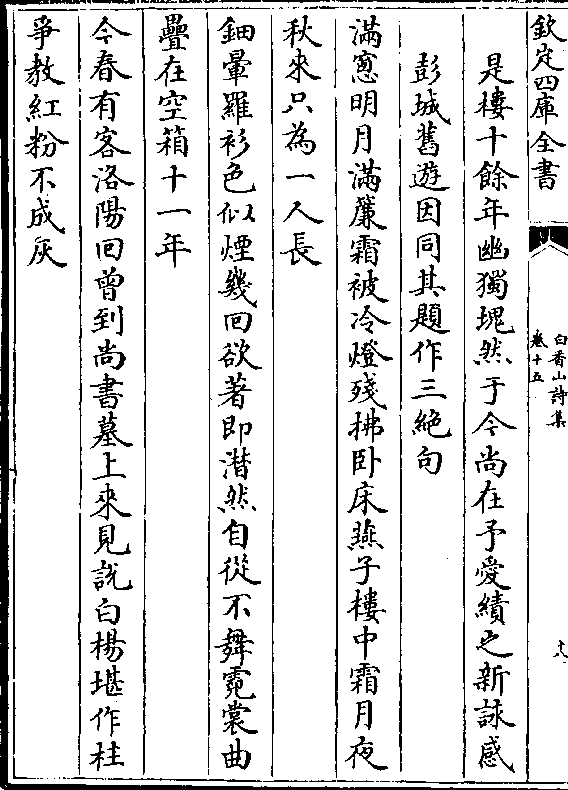 欽定四庫全書
白香山詩集
卷十五
是樓十餘年幽獨塊然于今尚在予愛績之新詠感
彭城舊遊因同其題作三絶句
滿窻明月滿簾霜被冷燈殘拂卧床燕子樓中霜月夜
秋來只為一人長
鈿暈羅衫色似煙幾回欲著即潸然自從不舞霓裳曲
疊在空箱十一年
今春有客洛陽回曾到尚書墓上來見說白楊堪作柱
爭教紅粉不成灰